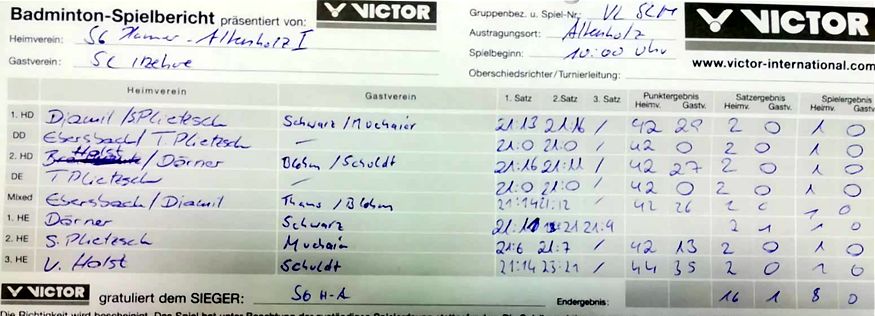 Badminton-Spielbericht präsentiert von: VICTOR Gruppenbez. u. Spiel-Nr. VL SLM VICTOR
Heimverein: SG Hammer-Altenholz I Austragungsort: Altenholz
Gastverein: SC Itzehoe Spielbeginn: 10:00 Uhr www.victor-international.com
Oberschiedsrichter/Turnierleitung:
Heimverein Gastverein 1. Satz 2.Satz 3. Satz Punktergebnis Heimv. Gastv. Satzergebnis Heimv. Gastv. Spielergebnis Heimv. Gastv.
1. HD Djamil/S Plietzsch Schwarz/Muchaier 21:13 21:16 / 42 29 2 0 1 0
DD Ebersbach/T. Plietzsch — 21:0 21:0 / 42 0 2 0 1 0
2. HD Holst/Dörner Blohm/Schuldt 21:16 21:11 / 42 27 2 0 1 0
DE T Plietzsch — 21:0 21:0 / 42 0 2 0 1 0
Mixed Ebersbach/Djamil Thams/Blohm 21:14 21:12 / 42 26 2 0 1 0
1. HE Dörner Schwarz 21 21:9 2 1 1 0
2. HE S. Plietzsch Muchaier 21:6 21:7 / 42 13 2 0 1 0
3. HE V. Holst Schuldt 21:14 23:21 / 44 35 2 0 1 0
VICTOR gratuliert dem SIEGER: SG H-A Endergebnis: 16 1 8 0